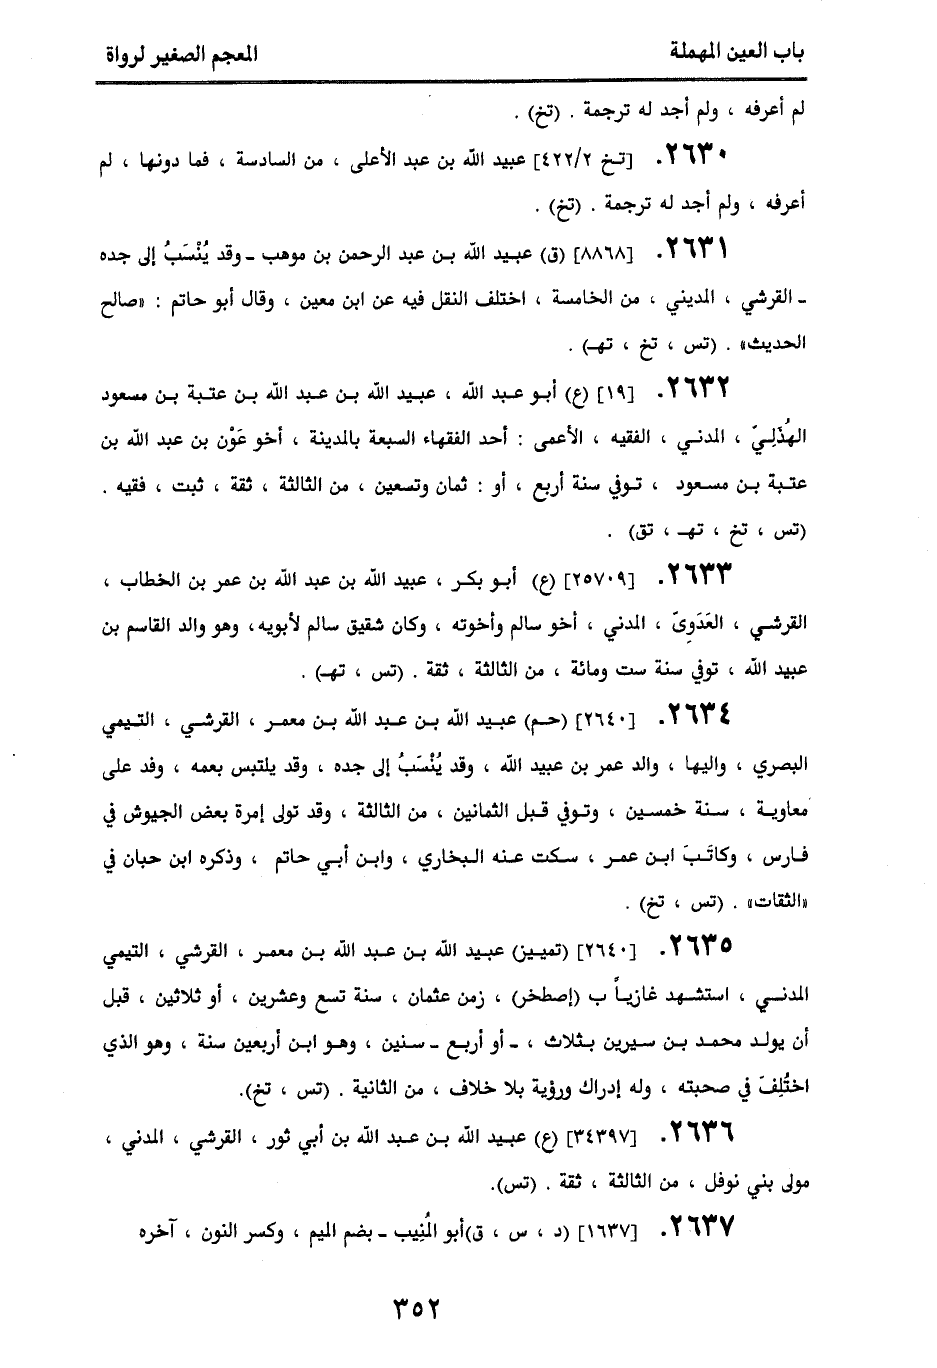 باب العين المهملة
المعجم الصغير لرواة
لم أعرفه ، ولم أجد له ترجمة . (تخ) .
٢٦٣٠. [تخ ٤٢٢/٢] عبيد الله بن عبد الأعلى ، من السادسة ، فما دونها ، لم
أعرفه ، ولم أجد له ترجمة . (تخ) .
٢٦٣١. [٨٨٦٨] (ق) عبيد الله بن عبد الرحمن بن موهب ـ وقد يُنْسَبُ إلى جده
ـ القرشي ، المديني ، من الخامسة ، اختلف النقل فيه عن ابن معين ، وقال أبو حاتم : «صالح
الحديث» . (تس ، تخ ، تهـ) .
٢٦٣٢. [١٩] (ع) أبو عبد الله ، عبيد الله بن عبد الله بن عتبة بن مسعود
الهُذَلِيّ ، المدني ، الفقيه ، الأعمى : أحد الفقهاء السبعة بالمدينة ، أخو عَوْن بن عبد الله بن
عتبة بن مسعود ، توفي سنة أربع ، أو : ثمان وتسعين ، من الثالثة ، ثقة ، ثبت ، فقيه .
(تس ، تخ ، تهـ ، تق) .
٢٦٣٣. [٢٥٧٠٩] (ع) أبو بكر ، عبيد الله بن عبد الله بن عمر بن الخطاب ،
القرشي ، العَدَوِىّ ، المدني ، أخو سالم وأخوته ، وكان شقيق سالم لأبويه، وهو والد القاسم بن
عبيد الله ، توفي سنة ست ومائة ، من الثالثة ، ثقة . (تس ، تهـ) .
٢٦٣٤. [٢٦٤٠] (حم) عبيد الله بن عبد الله بن معمر ، القرشي ، التيمي
البصري ، واليها ، والد عمر بن عبيد الله ، وقد يُنْسَبُ إلى جده ، وقد يلتبس بعمه ، وفد على
معاوية ، سنة خمسين ، وتوفي قبل الثمانين ، من الثالثة ، وقد تولى إمرة بعض الجيوش في
فارس ، وكاتَبَ ابن عمر ، سكت عنه البخاري ، وابن أبي حاتم ، وذكره ابن حبان في
«الثقات» . (تس ، تخ) .
٢٦٣٥. [٢٦٤٠] (تمييز) عبيد الله بن عبد الله بن معمر ، القرشي ، التيمي
المدني ، استشهد غازياً ب (إصطخر) ، زمن عثمان ، سنة تسع وعشرين ، أو ثلاثين ، قبل
أن يولد محمد بن سيرين بثلاث ، ـ أو أربع ـ سنين ، وهو ابن أربعين سنة ، وهو الذي
اختُلِفَ في صحبته ، وله إدراك ورؤية بلا خلاف ، من الثانية . (تس ، تخ).
٢٦٣٦. [٣٤٣٩٧] (ع) عبيد الله بن عبد الله بن أبي ثور ، القرشي ، المدني ،
مولى بني نوفل ، من الثالثة ، ثقة . (تس).
٢٦٣٧. [١٦٣٧] (د ، س ، ق)أبو المُنِيب ـ بضم الميم ، وكسر النون ، آخره
٣٥٢